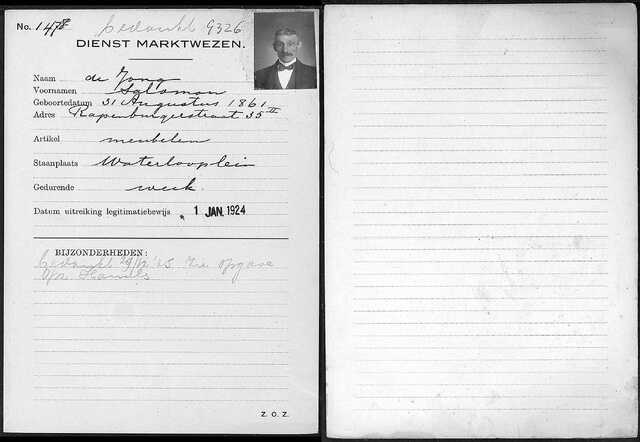 No. 1478 bedankt 9326
DIENST MARKTWEZEN.
Naam de Jong
Voornamen Salomon
Geboortedatum 31 Augustus 1861
Adres Rapenburgerstraat 35 II
Artikel meubelen
Staanplaats Waterlooplein
Gedurende week.
Datum uitreiking legitimatiebewijs 1 JAN. 1924
BIJZONDERHEDEN:
bedankt 29/12 '25 zie opgave
Z. O. Z.